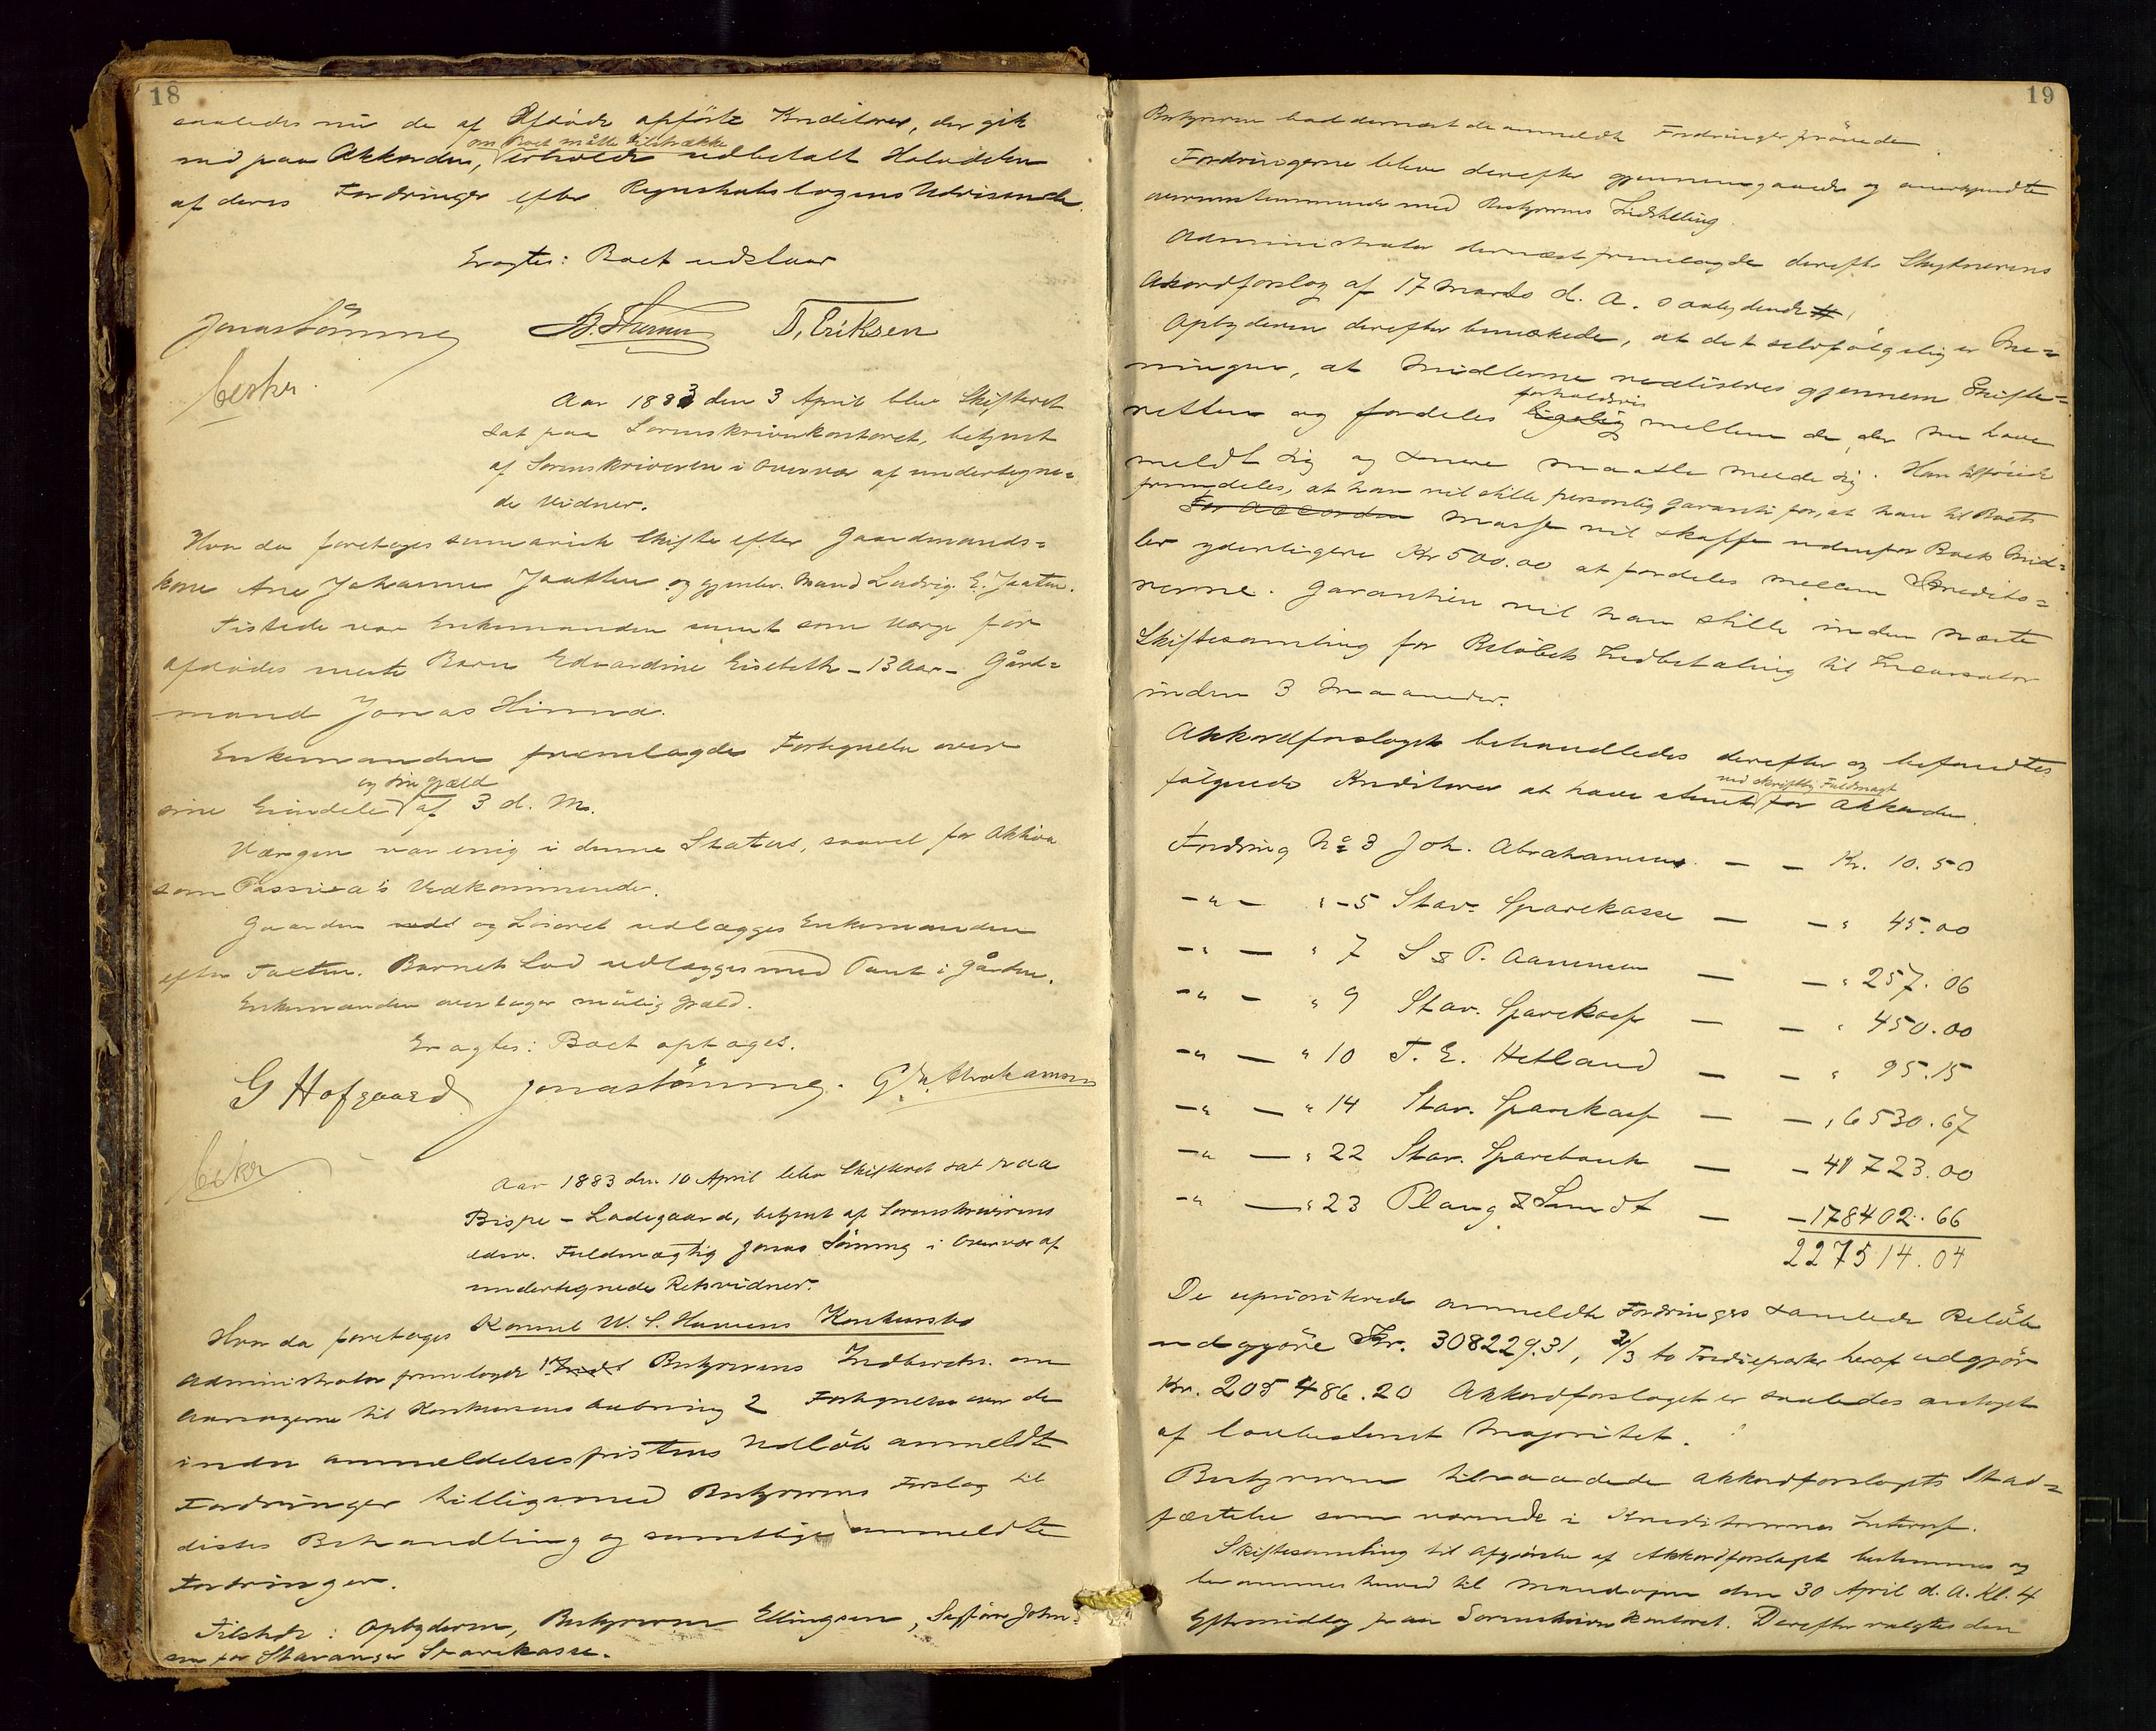 18
saaledes nu de af Afdøde opførte Kreditorer, der gik
om Boet måtte tilstrække
ind paa Akkorden, erholde udbetalt Halvdelen
af deres Fordringer efter Regnskabsbogens Udvisende.
Eragtes: Boet udslaar
Jonas Sømme D. Eriksen
Aar 1883 den 3 April blev Skifteret
sat paa Sorenskriverkontoret, betjent
af Sorenskriveren i Overvær af undertegne=
de Vidner.
Hvor da foretoges summarisk Skifte efter Gaardmands=
kone Ane Johanne Jaatten og gjenlev. Mand Ludvig E. Jaatten.
Tilstede var Enkemanden samt som Værge for
afdødes Barn Eduardine Elisebeth - 13 Aar - Gård=
mand Jonas Hinna.
Enkemanden fremlagde Fortegnelse over
og sin gjæld
sine Eiendele af 3 d. M.
Værgen var enig i denne Status, saavel for Aktiva
som Passiva's Vedkommende.
Gaarden og Løsøret udlægges Enkemanden
efter Taxten. Barnets Lod udlægges med Pant i Gården.
Enkemanden overtager mulig Gjæld.
Eragtes: Boet optages.
G Hofgaard Jonas Sømme. G. Abrahamsen
Aar 1883 den 10 April blev Skifteret sat paa
Bispe-Ladegaard, betjent af Sorenskriverens
edsv. Fuldmægtig Jonas Sømme i Overvær af
undertegnede Retsvidner.
Hvor da foretoges Konsul W. S. Hansens Konkursbo
Administrator fremlagde 1 Bestyrerens Indberetn. om
Aarsagerne til Konkursens Aabning 2 Fortegnelse over de
inden Anmeldelsesfristens Udløb anmeldte
Fordringer tilligemed Bestyrerens Forslag til
disses Behandling og samtlige anmeldte
Fordringer.
Tilstede: Opbyderen, Bestyreren Ellingsen, Sagfører John=
sen for Stavanger Sparekasse.
19
Bestyreren bad dernæst de anmeldte Fordringer prøvede
Fordringerne bleve derefter gjennemgaaede og anerkjendte
overensstemmende med Bestyrerens Indstilling.
Administrator dernæst fremlagde derefter Skyldnerens
Akordforslag af 17 Marts d. A. saalydende #
Opbyderen derefter bemærkede, at det selvfølgelig er Me=
ningen, at Midlerne realiseres gjennem Skifte=
forholdsvis
retten og fordeles ligelig mellem de, der nu have
meldt sig og senere maatte melde sig. Han tilføiede
fremdeles, at han vil stille personlig Garanti for, at han til Boets
for Accorden Masse vil skaffe udenfor Boets Mid=
ler yderligere Kr 500.00 at fordeles mellem Kredito=
rerne. Garantien vil han stille inden næste
Skiftesamling for Beløbets Indbetaling til Incassator
inden 3 Maaneder.
Akkordforslaget behandledes derefter og befandtes
ved skriftlig Fuldmagt
følgende Kreditorer at have stemt for Akkorden.
Fordring No 3 Joh. Abrahamsen — — Kr. 10.50
-"- " -5 Stav. Sparekasse — — " 45.00
-"- " 7 S & P. Aanensen — — " 257.06
-"- " 9 Stav. Sparekasse — — " 450.00
-"- " 10 T. E. Hetland — — " 95.15
-"- " 14 Stav. Sparekasse — — " 6530.67
-"- " 22 Stav. Sparebank — - 41723.00
-"- " 23 Plaug & Sundt — - 178402.66
227514.04
De uprioriterede anmeldte Fordringers samlede Beløb
udgjøre Kr. 308229.31, 2/3 to Trediepart heraf udgjør
Kr. 205486.20 Akkordforslaget er saaledes antaget
af lovbestemt Majoritet.
Bestyreren tilraadede Akkordforslagets Stad=
fæstelse som værende i Kreditorernes Interesse.
Skiftesamling til Afgjørelse af Akkordforslaget bestemmes og
berammes herved til Mandagen den 30 April d. A. Kl. 4
Eftermiddag paa Sorenskriverkontoret. Derefter valgtes den